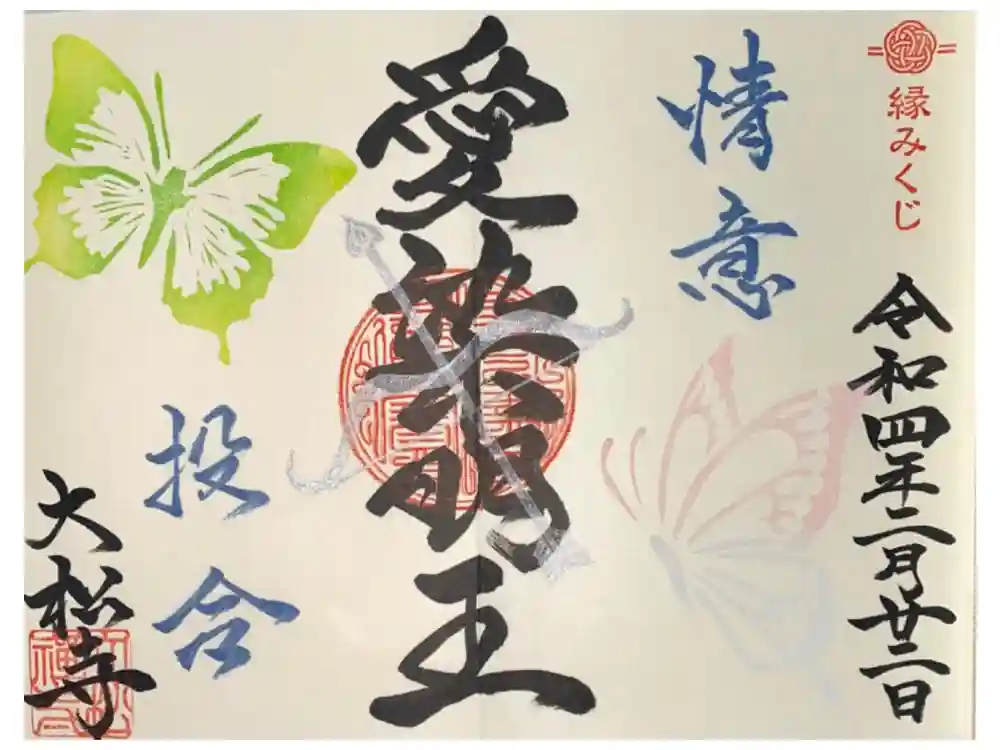 縁みくじ
令和四年二月廿二日
情意
愛染明王
投合
大松寺